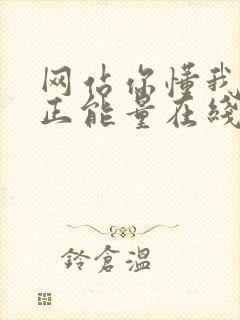 网站你懂我
正能量在线
鈴倉溫